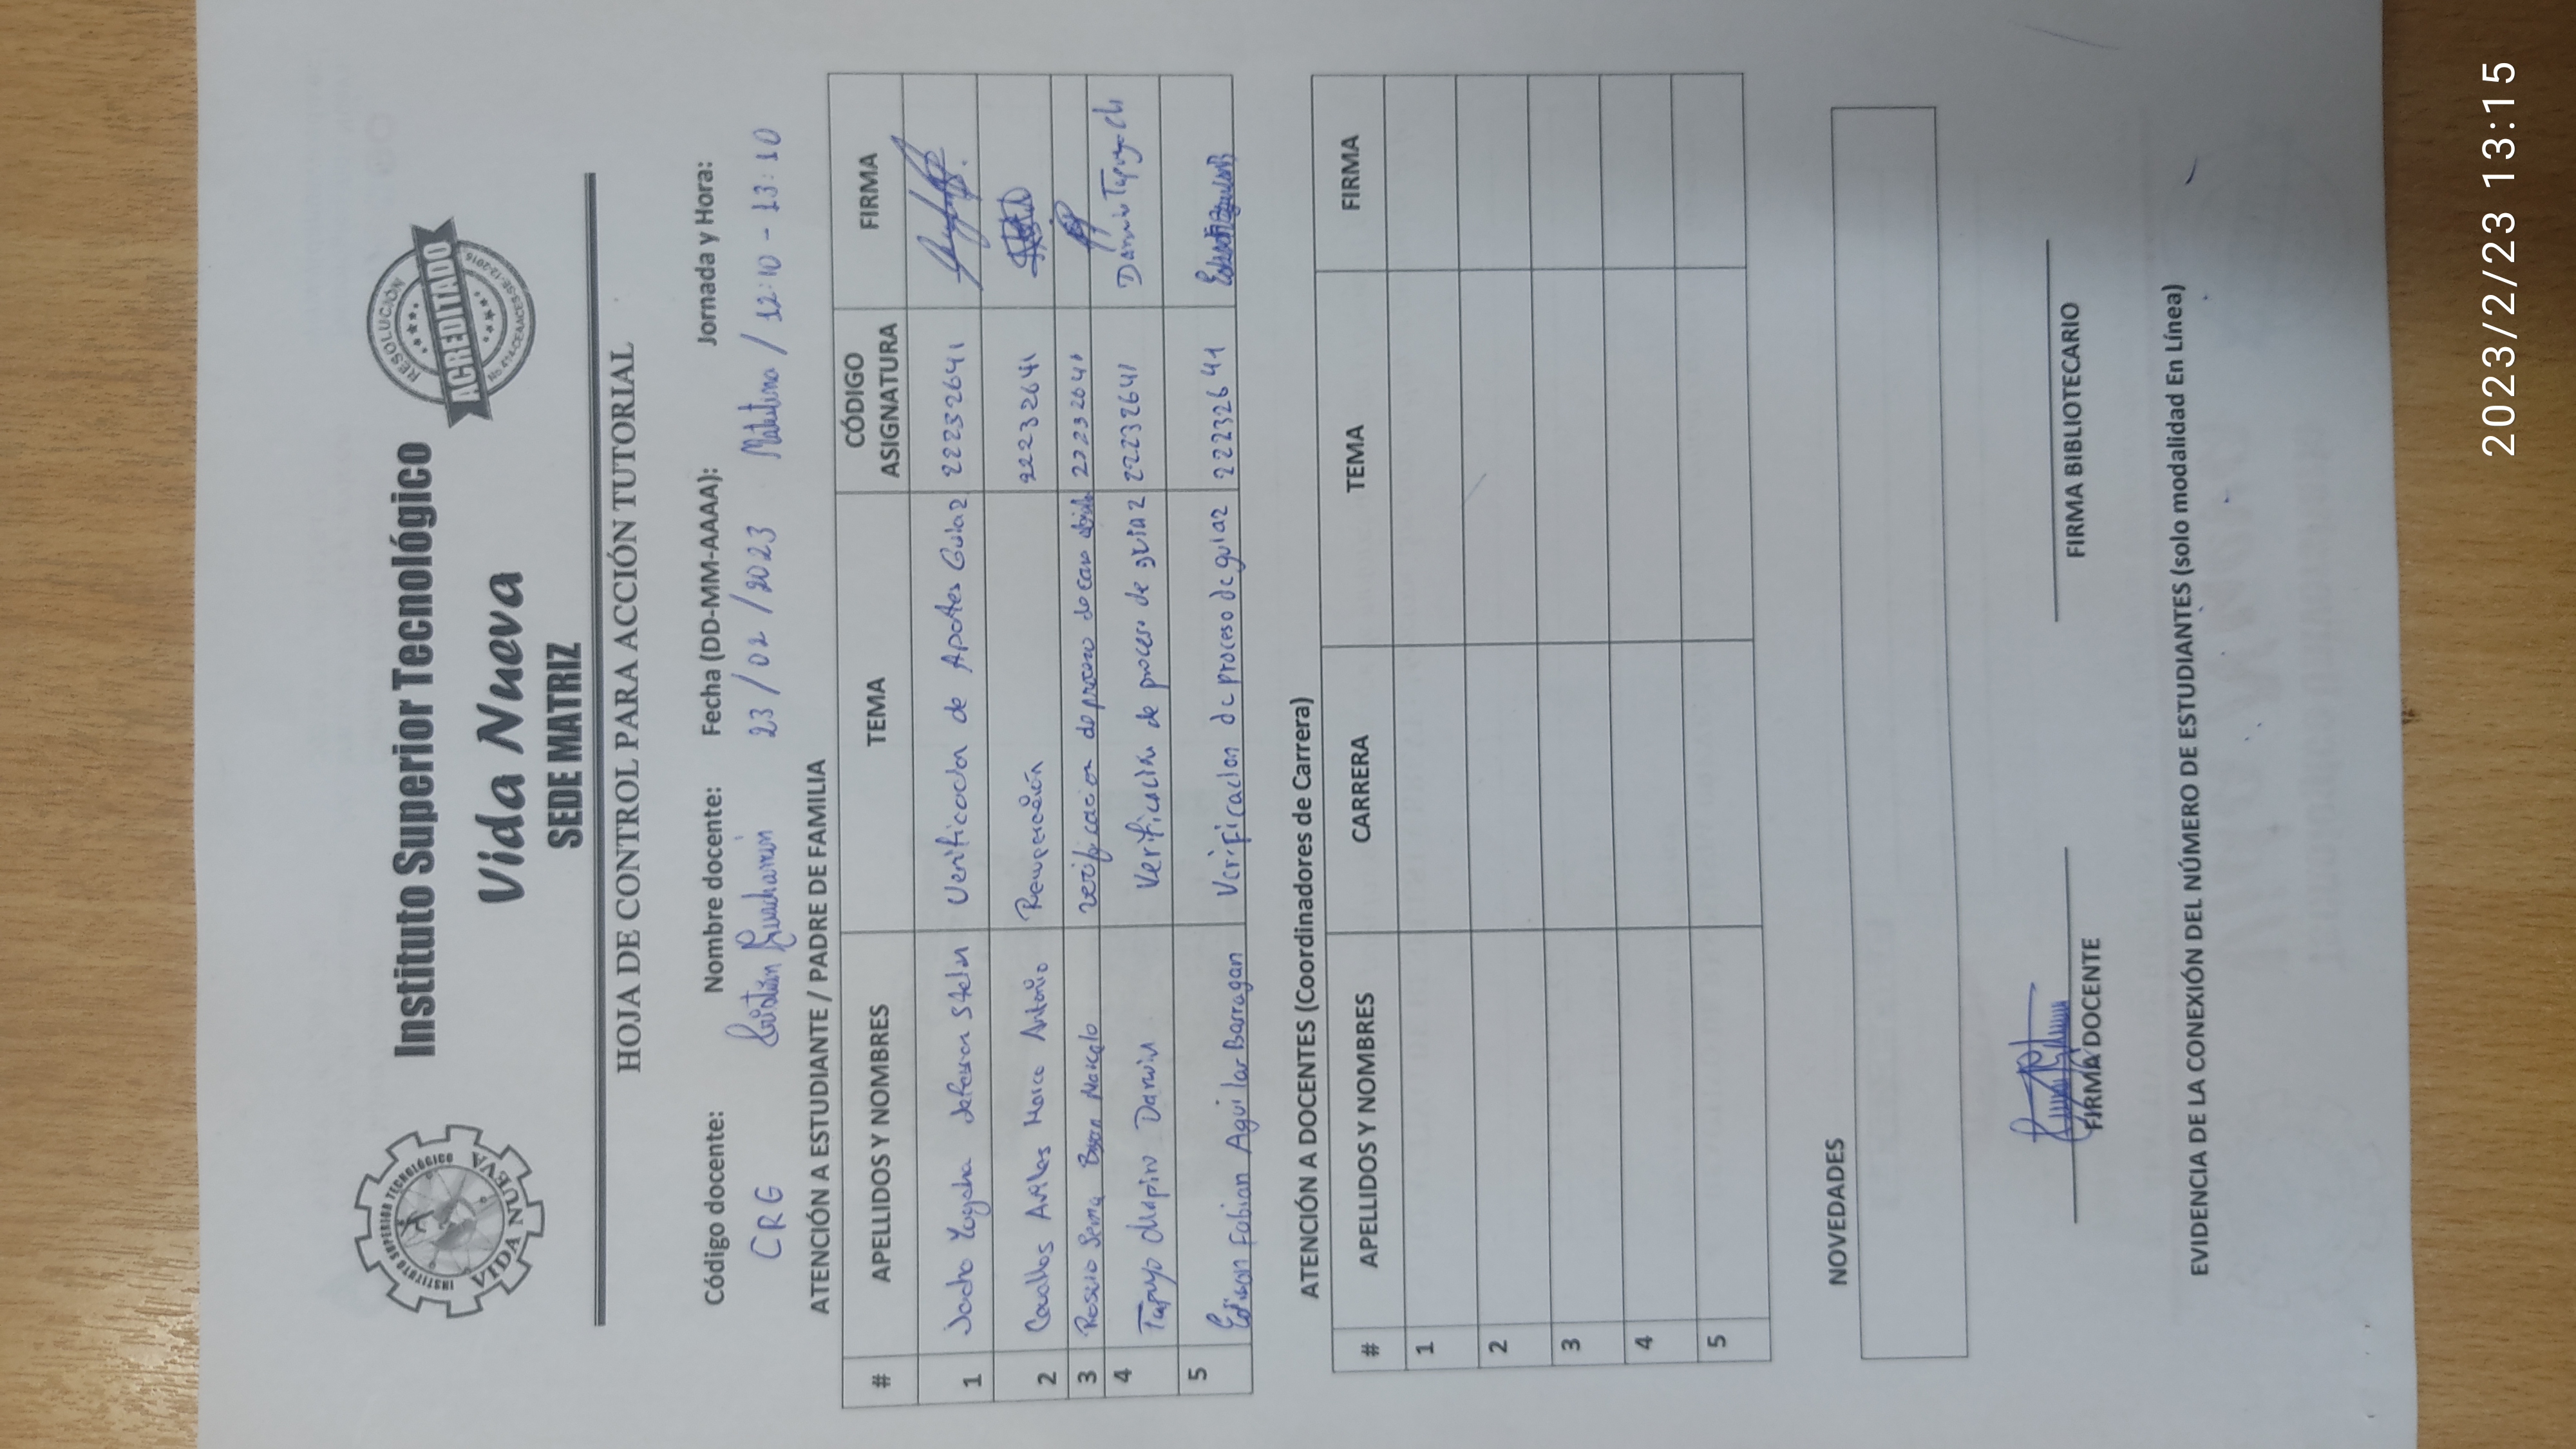 INSTITUTO SUPERIOR TECNOLÓGICO
VIDA NUEVA
Instituto Superior Tecnológico
Vida Nueva
SEDE MATRIZ
RESOLUCIÓN
ACREDITADO
No.414-CEAACES-SE-12-2016
HOJA DE CONTROL PARA ACCIÓN TUTORIAL
Código docente: Nombre docente: Fecha (DD-MM-AAAA): Jornada y Hora:
CRG Cristian Guachamin 23/02/2023 Matutina / 12:10 - 13:10
ATENCIÓN A ESTUDIANTE / PADRE DE FAMILIA
# APELLIDOS Y NOMBRES TEMA CÓDIGO ASIGNATURA FIRMA
1 Jacho Jefferson Stalin Verificación de Guia 2 22232641
2 Cevallos Aviles Marco Antonio Recuperación 22232641
3 Marcelo verificacion de proceso de caso 22232641
4 Tapuyo Chapiro Darwin Verificación de proceso de guia 2 22232641 Darwin Tapuyo Ch
5 Edison Fabian Aguilar Barragan Verificacion de proceso de guia 2 22232641
ATENCIÓN A DOCENTES (Coordinadores de Carrera)
# APELLIDOS Y NOMBRES CARRERA TEMA FIRMA
1
2
3
4
5
NOVEDADES
FIRMA DOCENTE FIRMA BIBLIOTECARIO
EVIDENCIA DE LA CONEXIÓN DEL NÚMERO DE ESTUDIANTES (solo modalidad En Línea)
2023/2/23 13:15